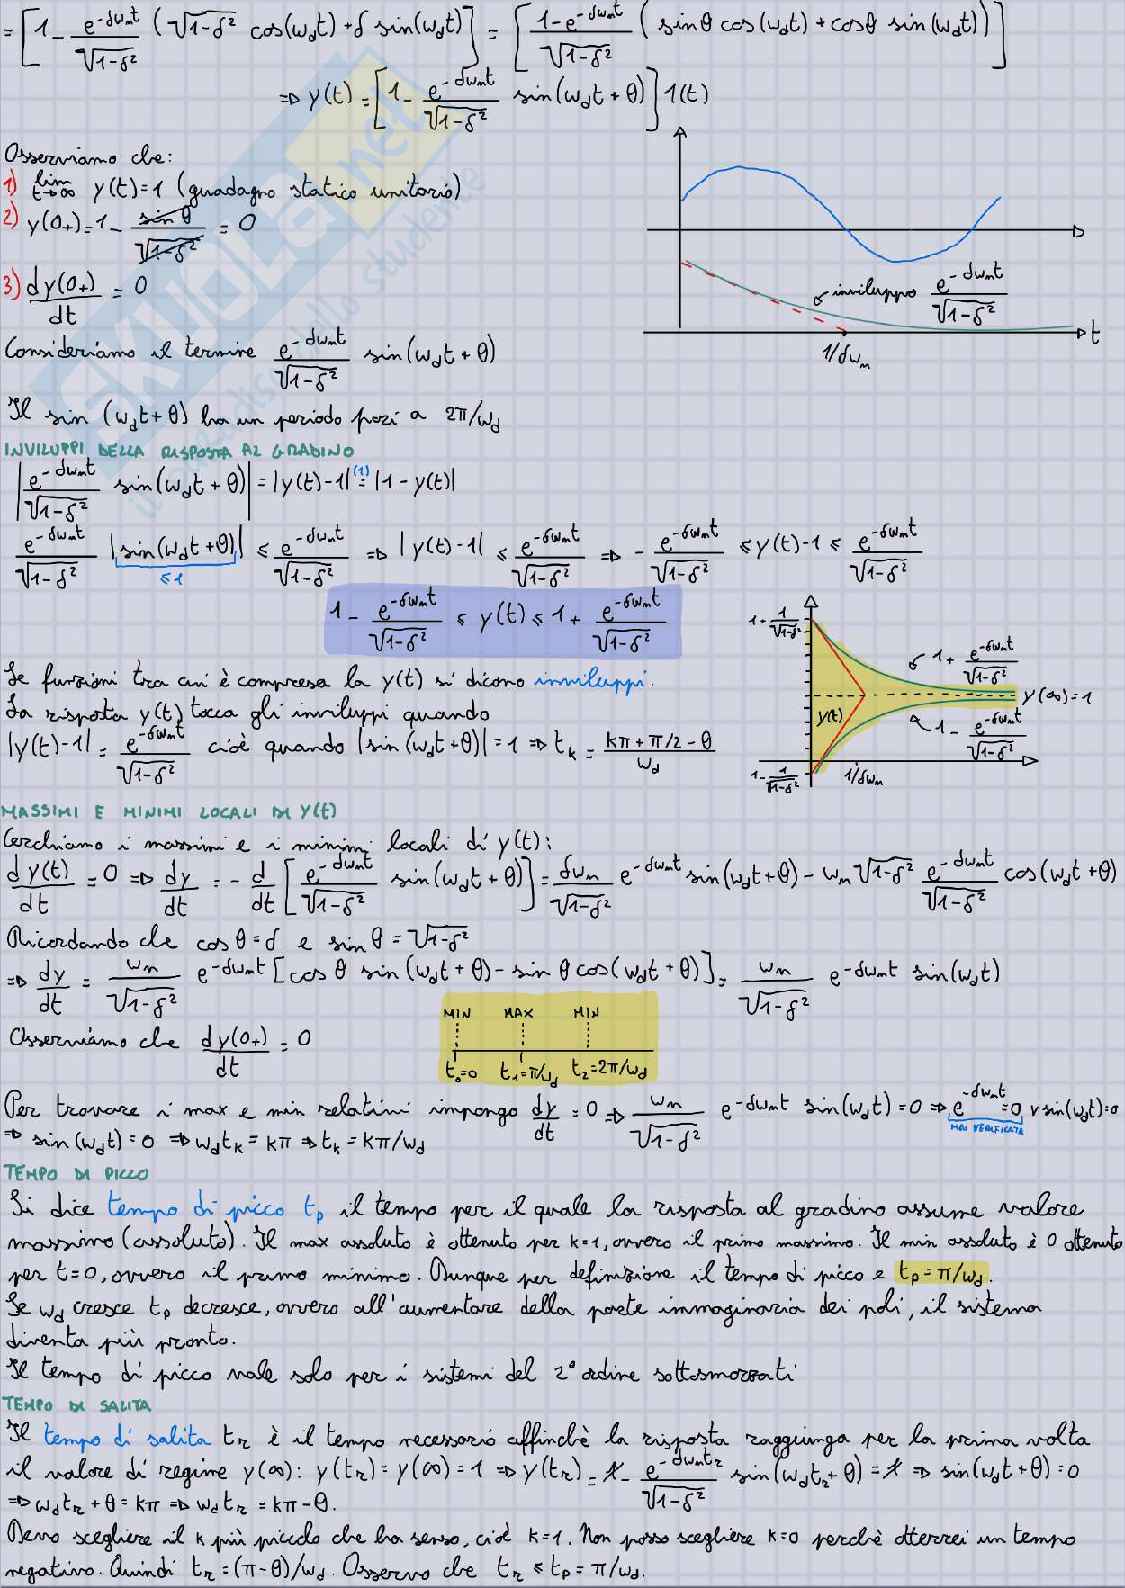 = [1 - e^-δωnt/√1-δ² (√1-δ² cos(ωdt) + δ sin(ωdt)] = [1-e^-δωnt/√1-δ² (sinθ cos(ωdt) + cosθ sin(ωdt))]
⇒ y(t) = [1 - e^-δωnt/√1-δ² sin(ωdt + θ)] 1(t)
Osserviamo che:
1) lim t→∞ y(t)=1 (guadagno statico unitario)
2) y(0+)=1 - sin θ/√1-δ² = 0
3) dy(0+)/dt = 0
inviluppo e^-δωnt/√1-δ²
t
1/δωn
Consideriamo il termine e^-δωnt/√1-δ² sin(ωdt + θ)
Il sin (ωdt+θ) ha un periodo pari a 2π/ωd
INVILUPPI DELLA RISPOSTA AL GRADINO
|e^-δωnt/√1-δ² sin(ωdt + θ)| = |y(t)-1| (1)= |1-y(t)|
e^-δωnt/√1-δ² |sin(ωdt+θ)| ≤ e^-δωnt/√1-δ² ⇒ |y(t)-1| ≤ e^-δωnt/√1-δ² ⇒ - e^-δωnt/√1-δ² ≤ y(t)-1 ≤ e^-δωnt/√1-δ²
≤1
1 - e^-δωnt/√1-δ² ≤ y(t) ≤ 1 + e^-δωnt/√1-δ²
1+ 1/√1-δ²
1 + e^-δωnt/√1-δ²
y(∞)=1
y(t)
1 - e^-δωnt/√1-δ²
1- 1/√1-δ²
1/δωn
Le funzioni tra cui è compresa la y(t) si dicono inviluppi.
La risposta y(t) tocca gli inviluppi quando
|y(t)-1| = e^-δωnt/√1-δ² cioè quando |sin(ωdt+θ)| = 1 ⇒ tk = kπ+π/2-θ/ωd
MASSIMI E MINIMI LOCALI DI y(t)
Cerchiamo i massimi e i minimi locali di y(t):
dy(t)/dt = 0 ⇒ dy/dt = - d/dt [e^-δωnt/√1-δ² sin(ωdt+θ)] = δωn/√1-δ² e^-δωnt sin(ωdt+θ) - ωn√1-δ² e^-δωnt/√1-δ² cos(ωdt+θ)
Ricordando che cosθ=δ e sinθ=√1-δ²
⇒ dy/dt = ωn/√1-δ² e^-δωnt [cosθ sin(ωdt+θ) - sinθ cos(ωdt+θ)] = ωn/√1-δ² e^-δωnt sin(ωdt)
MIN MAX MIN
Osserviamo che dy(0+)/dt = 0
t0=0 t1=π/ωd t2=2π/ωd
Per trovare i max e min relativi impongo dy/dt = 0 ⇒ ωn/√1-δ² e^-δωnt sin(ωdt) = 0 ⇒ e^-δωnt=0 v sin(ωdt)=0
MAI VERIFICATA
⇒ sin(ωdt) = 0 ⇒ ωdtk = kπ ⇒ tk = kπ/ωd
TEMPO DI PICCO
Si dice tempo di picco tp il tempo per il quale la risposta al gradino assume valore
massimo (assoluto). Il max assoluto è ottenuto per k=1, ovvero il primo massimo. Il min assoluto è 0 ottenuto
per t=0, ovvero il primo minimo. Dunque per definizione il tempo di picco e tp=π/ωd.
Se ωd cresce tp decresce, ovvero all'aumentare della parte immaginaria dei poli, il sistema
diventa più pronto.
Il tempo di picco vale solo per i sistemi del 2° ordine sottosmorzati
TEMPO DI SALITA
Il tempo di salita tr è il tempo necessario affinchè la risposta raggiunga per la prima volta
il valore di regime y(∞): y(tr) = y(∞) = 1 ⇒ y(tr) = 1 - e^-δωntr/√1-δ² sin(ωdtr+θ) = 1 ⇒ sin(ωdt+θ) = 0
⇒ ωdtr + θ = kπ ⇒ ωdtr = kπ-θ.
Devo scegliere il k più piccolo che ha senso, cioè k=1. Non posso scegliere k=0 perchè otterrei un tempo
negativo. Quindi tr=(π-θ)/ωd. Osservo che tr ≤ tp = π/ωd.